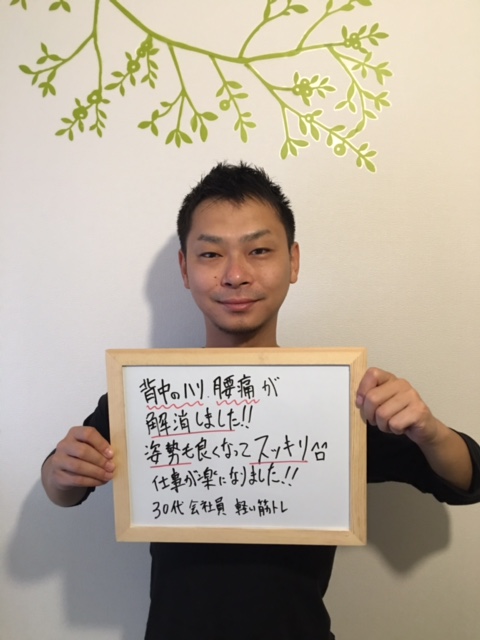 背中のハリ、腰痛が
解消しました!!
姿勢も良くなってスッキリ^^
仕事が楽になりました!!
30代 会社員 軽い筋トレ